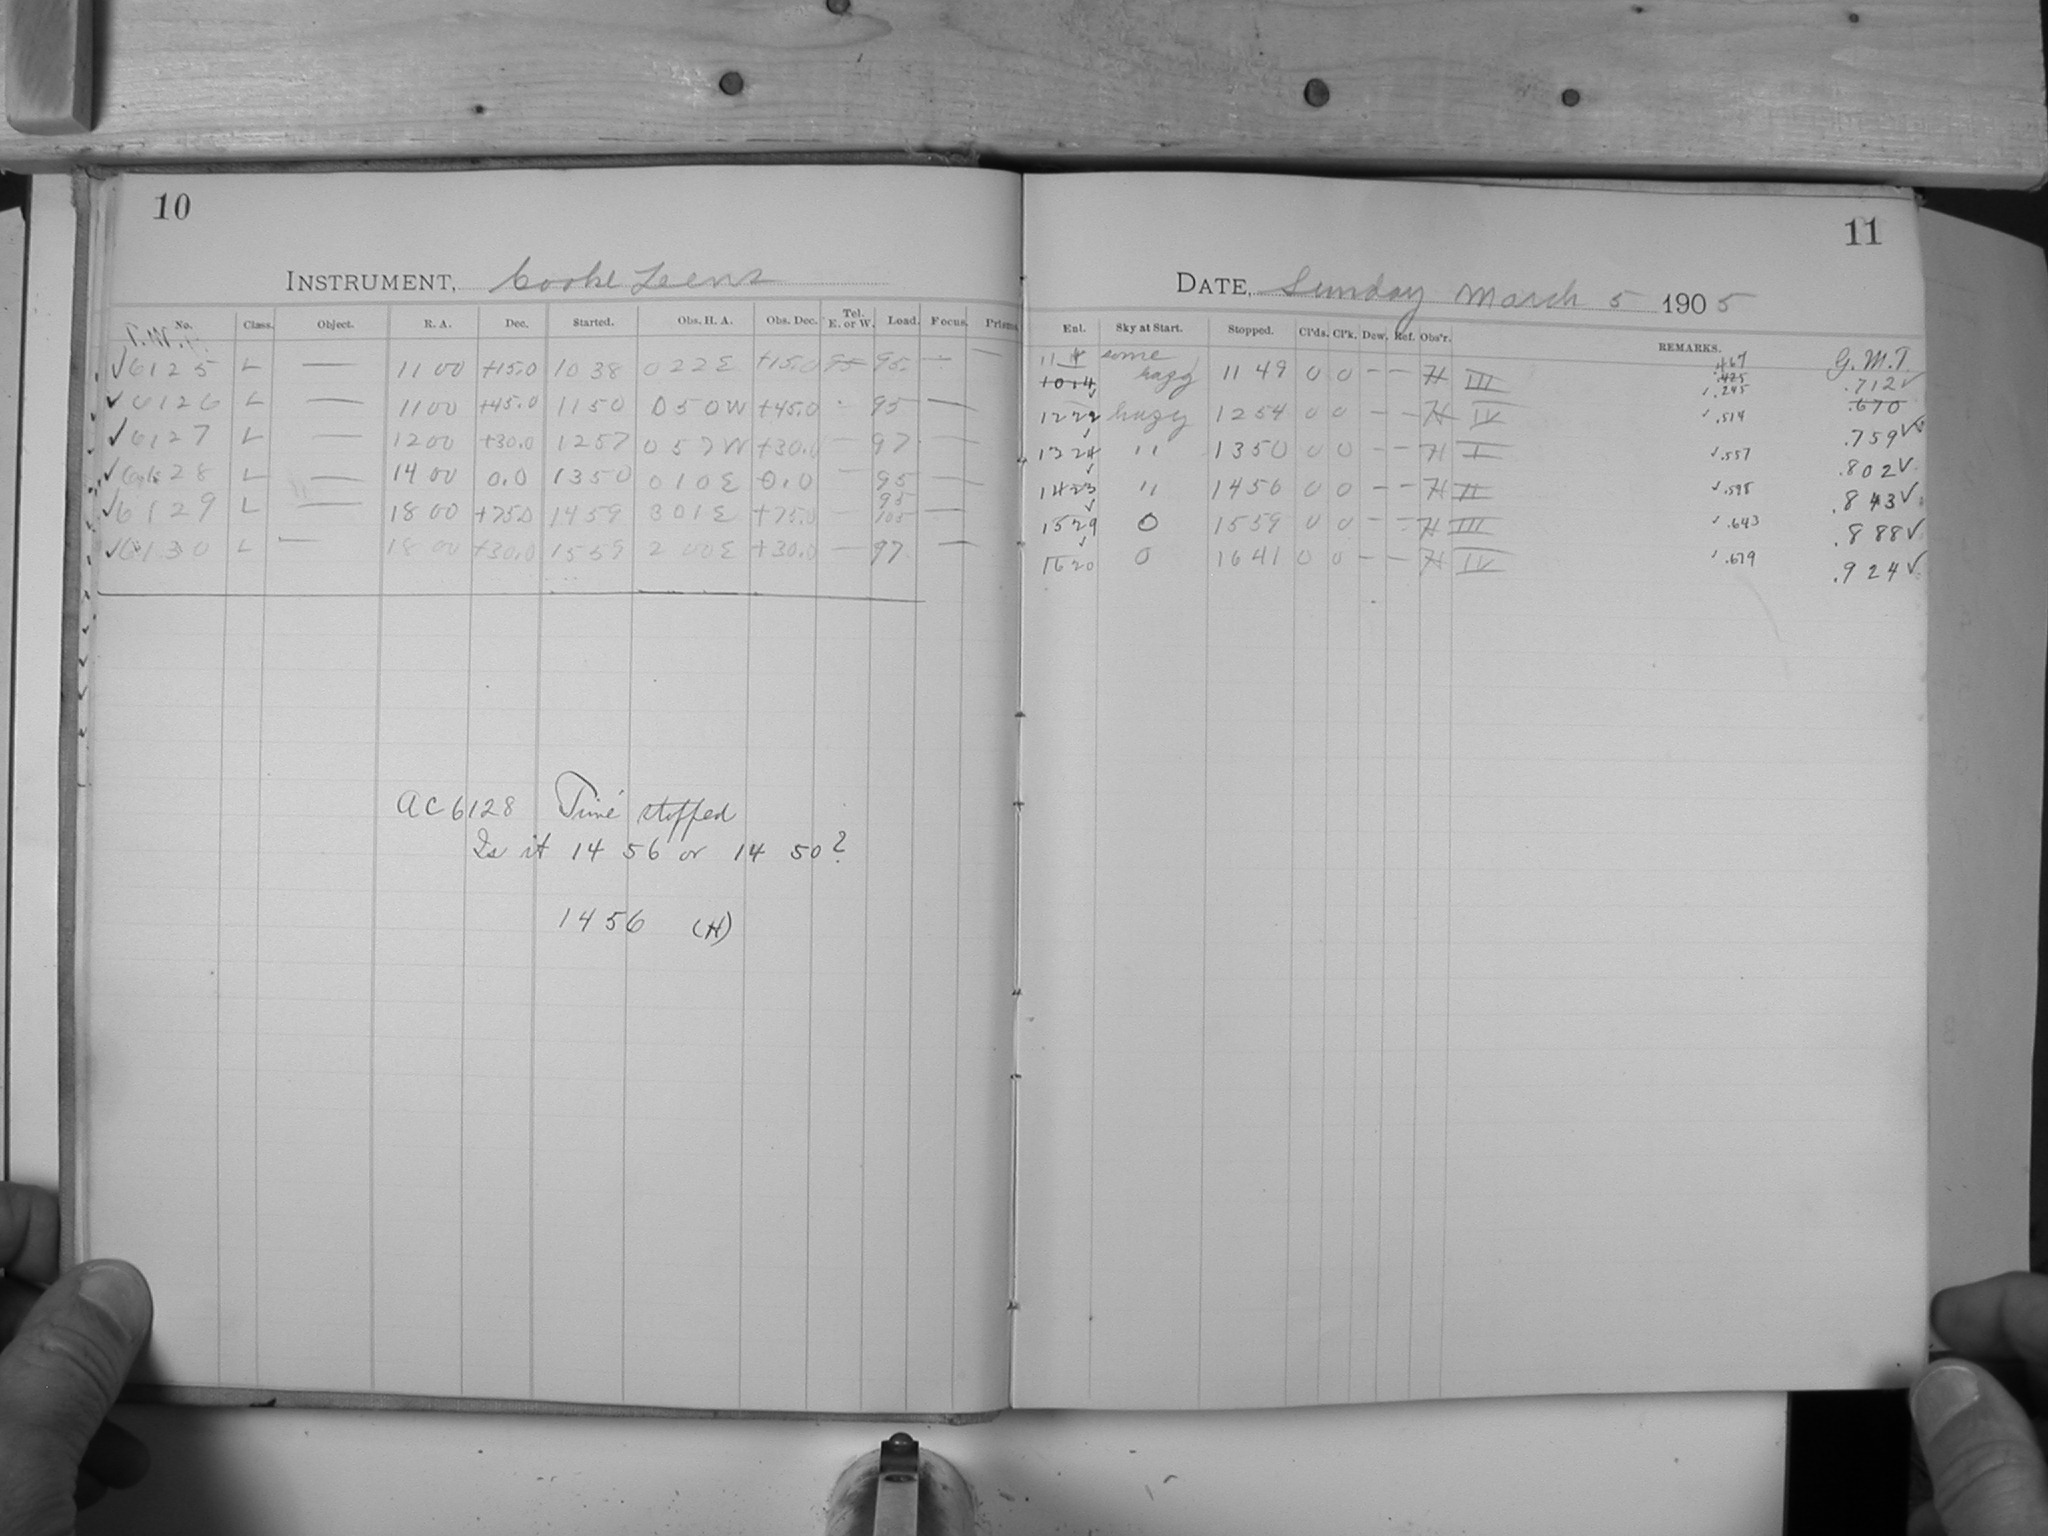 10
INSTRUMENT, Cooke Lens
No. Class. Object. R. A. Dec. Started. Obs. H. A. Obs. Dec. Tel. E. or W. Load. Focus. Prisms
✓6125 L — 11 00 +15.0 10 38 0 22 E +15.0 95 95. — —
✓6126 L — 11 00 +45.0 11 50 0 50 W +45.0 - 95 —
✓6127 L — 12 00 +30.0 12 57 0 57 W +30.0 — 97 —
✓6128 L — 14 00 0.0 13 50 0 10 E 0.0 — 95 —
✓6129 L — 18 00 +75.0 14 59 3 01 E +75.0 — 95 103 —
✓6130 L — 18 00 +30.0 15 59 2 00 E +30.0 — 97 —
AC 6128 Time stopped
Is it 14 56 or 14 50?
14 56 (H)
11
DATE, Sunday March 5 1905
Enl. Sky at Start. Stopped. Cl'ds. Cl'k. Dew. Ref. Obs'r. REMARKS.
G. M. T.
some hazy 11 49 0 0 — — H III .712✓
10 14 .425 .245 .670
12 22 hazy 12 54 0 0 — — H IV ✓.514 .759✓
13 24 " 13 50 0 0 — — H I ✓.557 .802✓
14 23 " 14 56 0 0 — — H II ✓.598 .843✓
15 29 0 15 59 0 0 — — H III ✓.643 .888✓
16 20 0 16 41 0 0 — — H IV ✓.679 .924✓